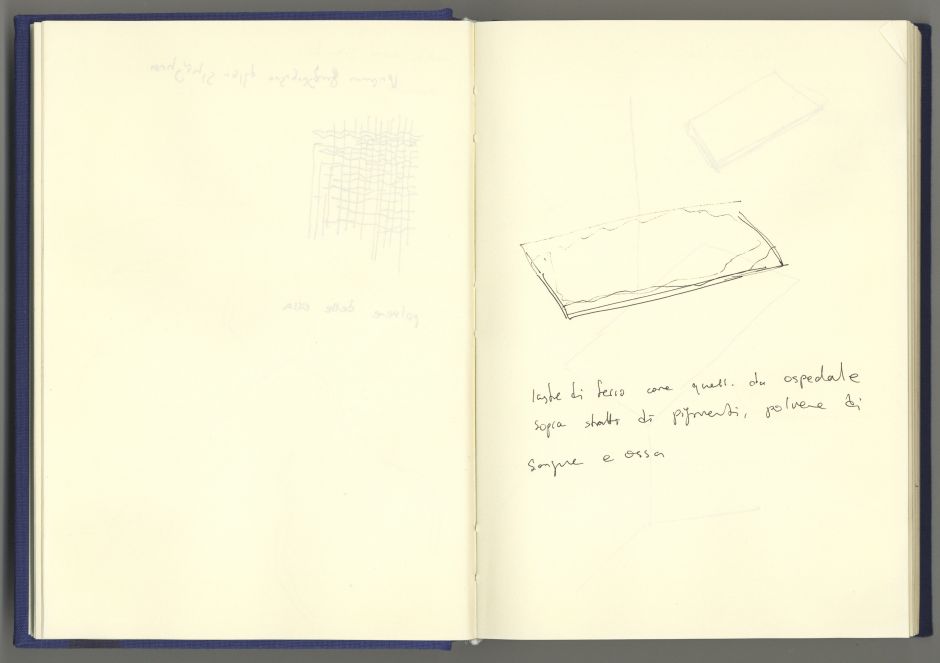 polvere delle ossa
lastre di ferro come quelli da ospedale
sopra strati di pigmenti, polvere di
sangue e ossa